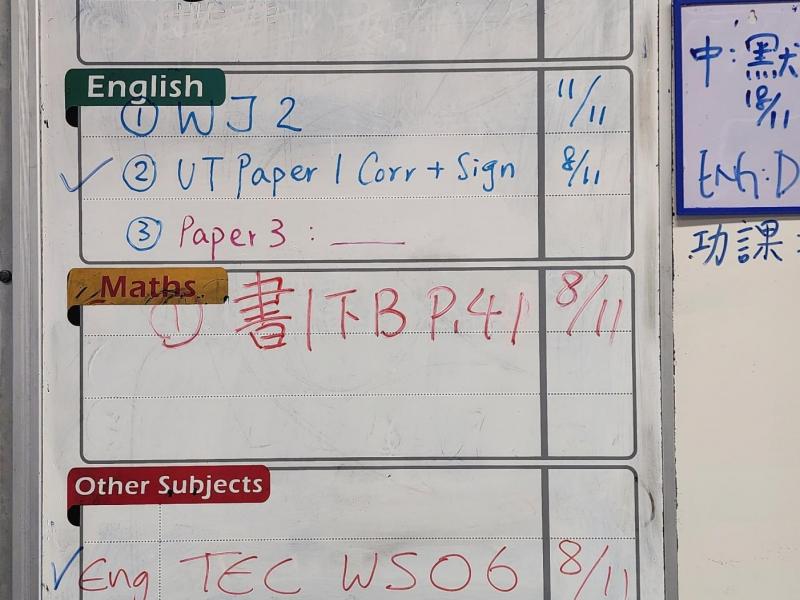 English
① WJ2 11/11
② UT Paper 1 Corr + Sign 8/11
③ Paper 3 : ____
Maths
① 書1下B P.41 8/11
Other Subjects
Eng TEC WS06 8/11
中: 默
18/11
ENG: D
功課